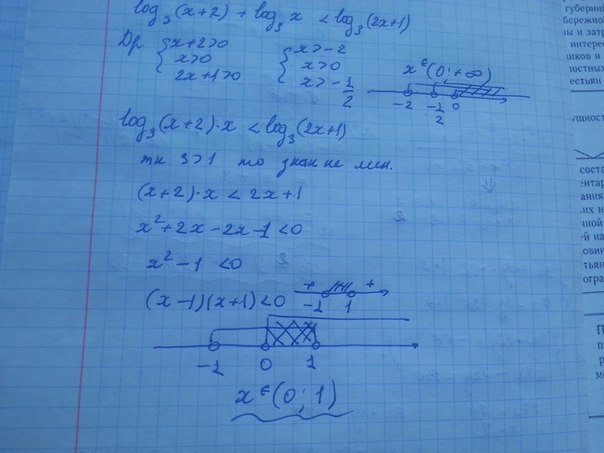 log₃(x+2) + log₃x < log₃(2x+1)
Др { x+2>0 { x>-2
x>0 x>0 x ∈ (0; +∞)
2x+1>0 x>-1/2
-2 -1/2 0
log₃(x+2)·x < log₃(2x+1)
тк 3>1 то знак не мен.
(x+2)·x < 2x+1
x²+2x-2x-1<0
x²-1 <0
(x-1)(x+1)<0 + -1 1 +
-1 0 1
x ∈ (0; 1)
губерни
бережно
ны и затр
интерес
ников и
ностных
естьян
ущност
соста
ентар
ания
их и
чной
-й на
овин
тьян
огра
П
п
р
м